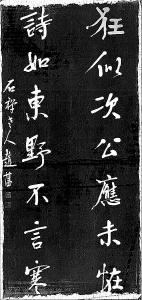 狂似次公應未怪
詩如東野不言寒
石禪老人趙藩